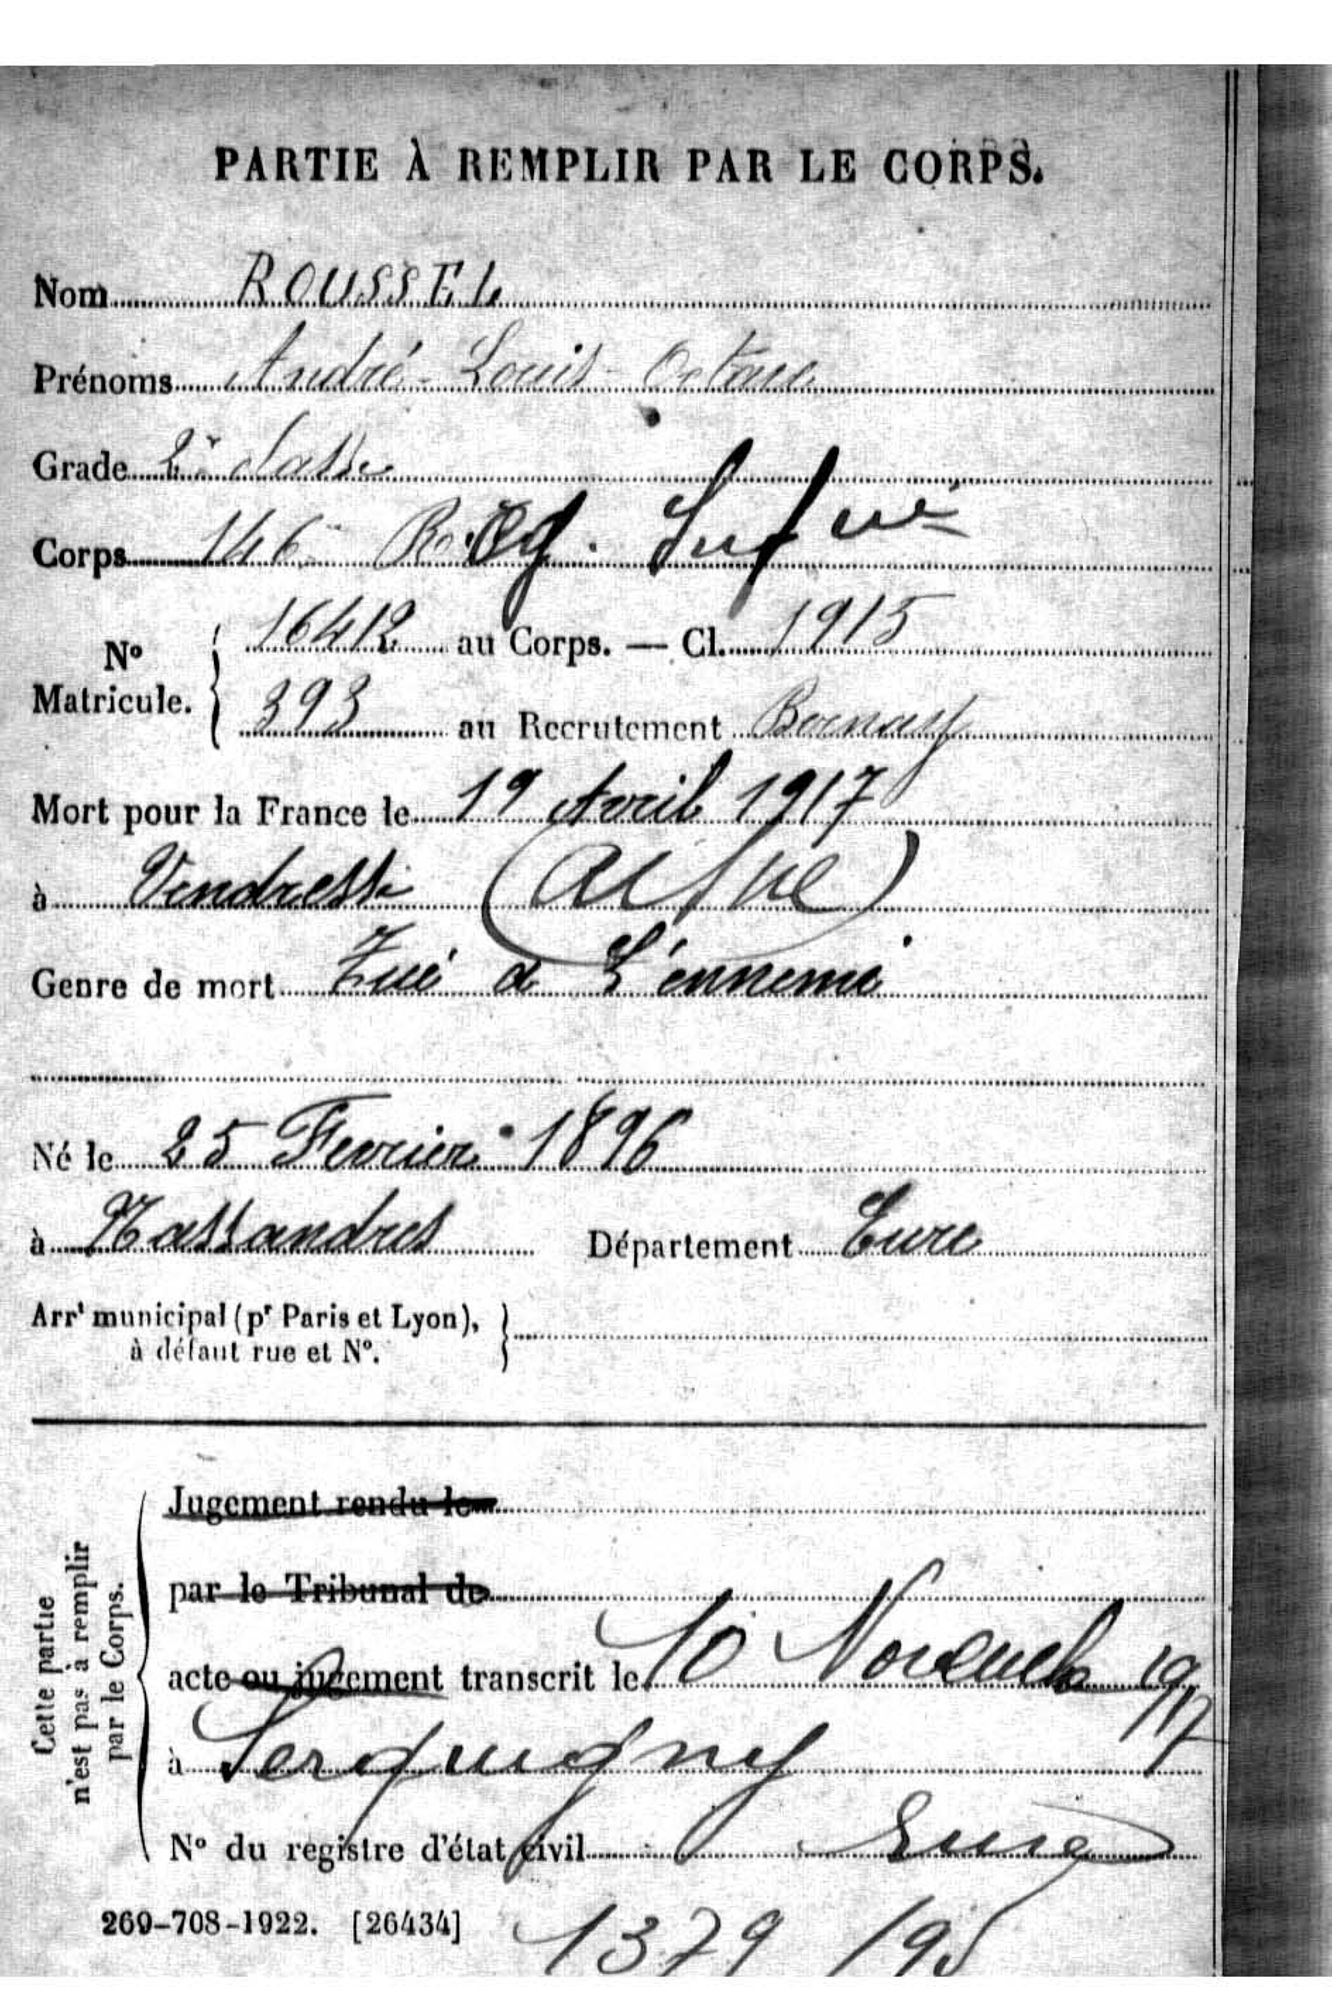 PARTIE À REMPLIR PAR LE CORPS.
Nom ROUSSEL
Prénoms André-Louis-Octave
Grade 2e classe
Corps 146 Reg. Inf
No Matricule. { 16412 au Corps. — Cl. 1915
393 au Recrutement Bernay
Mort pour la France le 19 Avril 1917
à Vendresse (Aisne)
Genre de mort Tué à L'ennemi
Né le 25 Fevrier 1896
à Nassandres Département Eure
Arrt municipal (pr Paris et Lyon),
à défaut rue et No.
Cette partie
n'est pas à remplir
par le Corps.
Jugement rendu le
par le Tribunal de
acte ou jugement transcrit le 10 Novembre 1917
à Serquigny
No du registre d'état civil Eure
269-708-1922. [26434] 1379 195